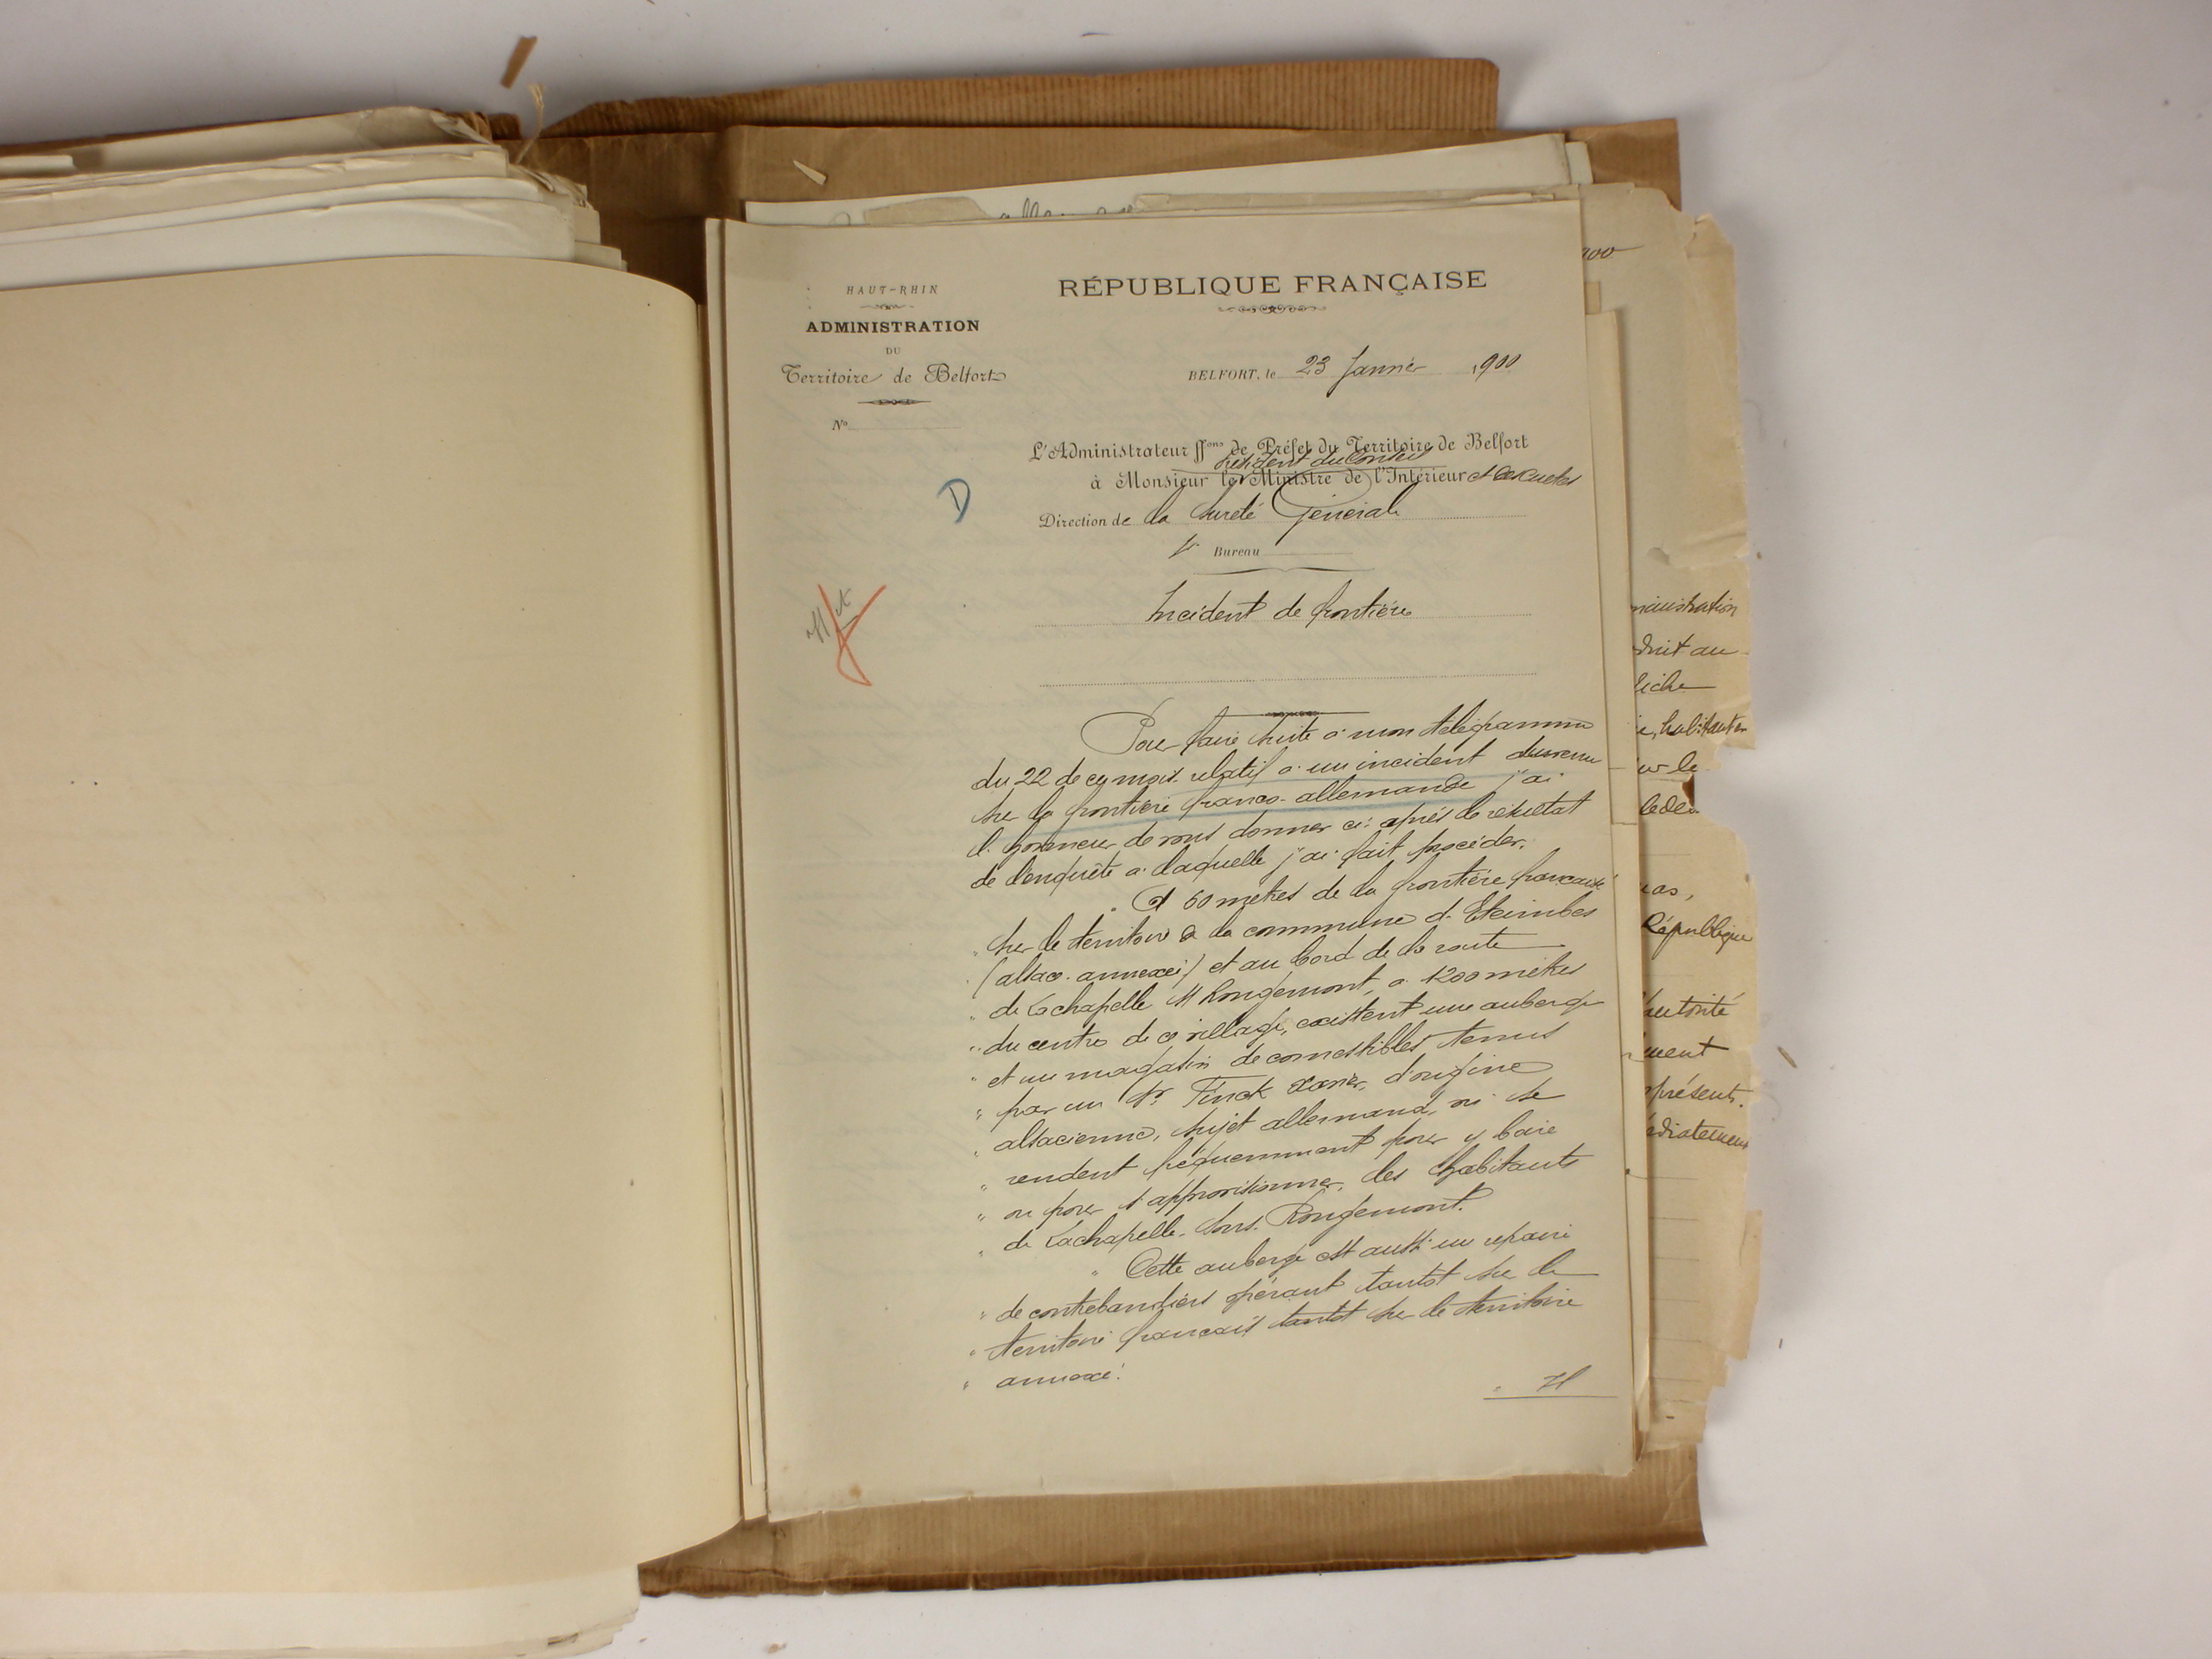 HAUT-RHIN
ADMINISTRATION
DU
Territoire de Belfort
No
RÉPUBLIQUE FRANÇAISE
BELFORT, le 23 Janvier 1900
L'Administrateur ffons de Préfet du Territoire de Belfort
Président du Conseil
à Monsieur le Ministre de l'Intérieur et des Cultes
D
Direction de la Sureté Générale
1er Bureau
Incident de frontière
Pour faire suite à mon télégramme
du 22 de ce mois relatif à un incident survenu
sur la frontière franco-allemande j'ai
l'honneur de vous donner ci-après le résultat
de l'enquête à laquelle j'ai fait procéder.
" A 60 mètres de la frontière française
" sur le territoire de la commune d'Eteimbes
" (alsace annexée) et au bord de la route
" de Lachapelle s/ Rougemont, à 1200 mètres
" du centre de ce village, existent une auberge
" et un magasin de comestibles tenus
" par un Sr Finck Xavier, d'origine
" alsacienne, sujet allemand, où se
" rendent fréquemment pour y boire
" ou pour s'approvisionner, des habitants
" de Lachapelle-sous-Rougemont.
" Cette auberge est aussi un repaire
" de contrebandiers opérant tantôt sur le
" territoire français tantôt sur le territoire
" annexé.
" Il
900
ministration
droit au
liche
habitant
sur le
République
autorité
ment
présent.